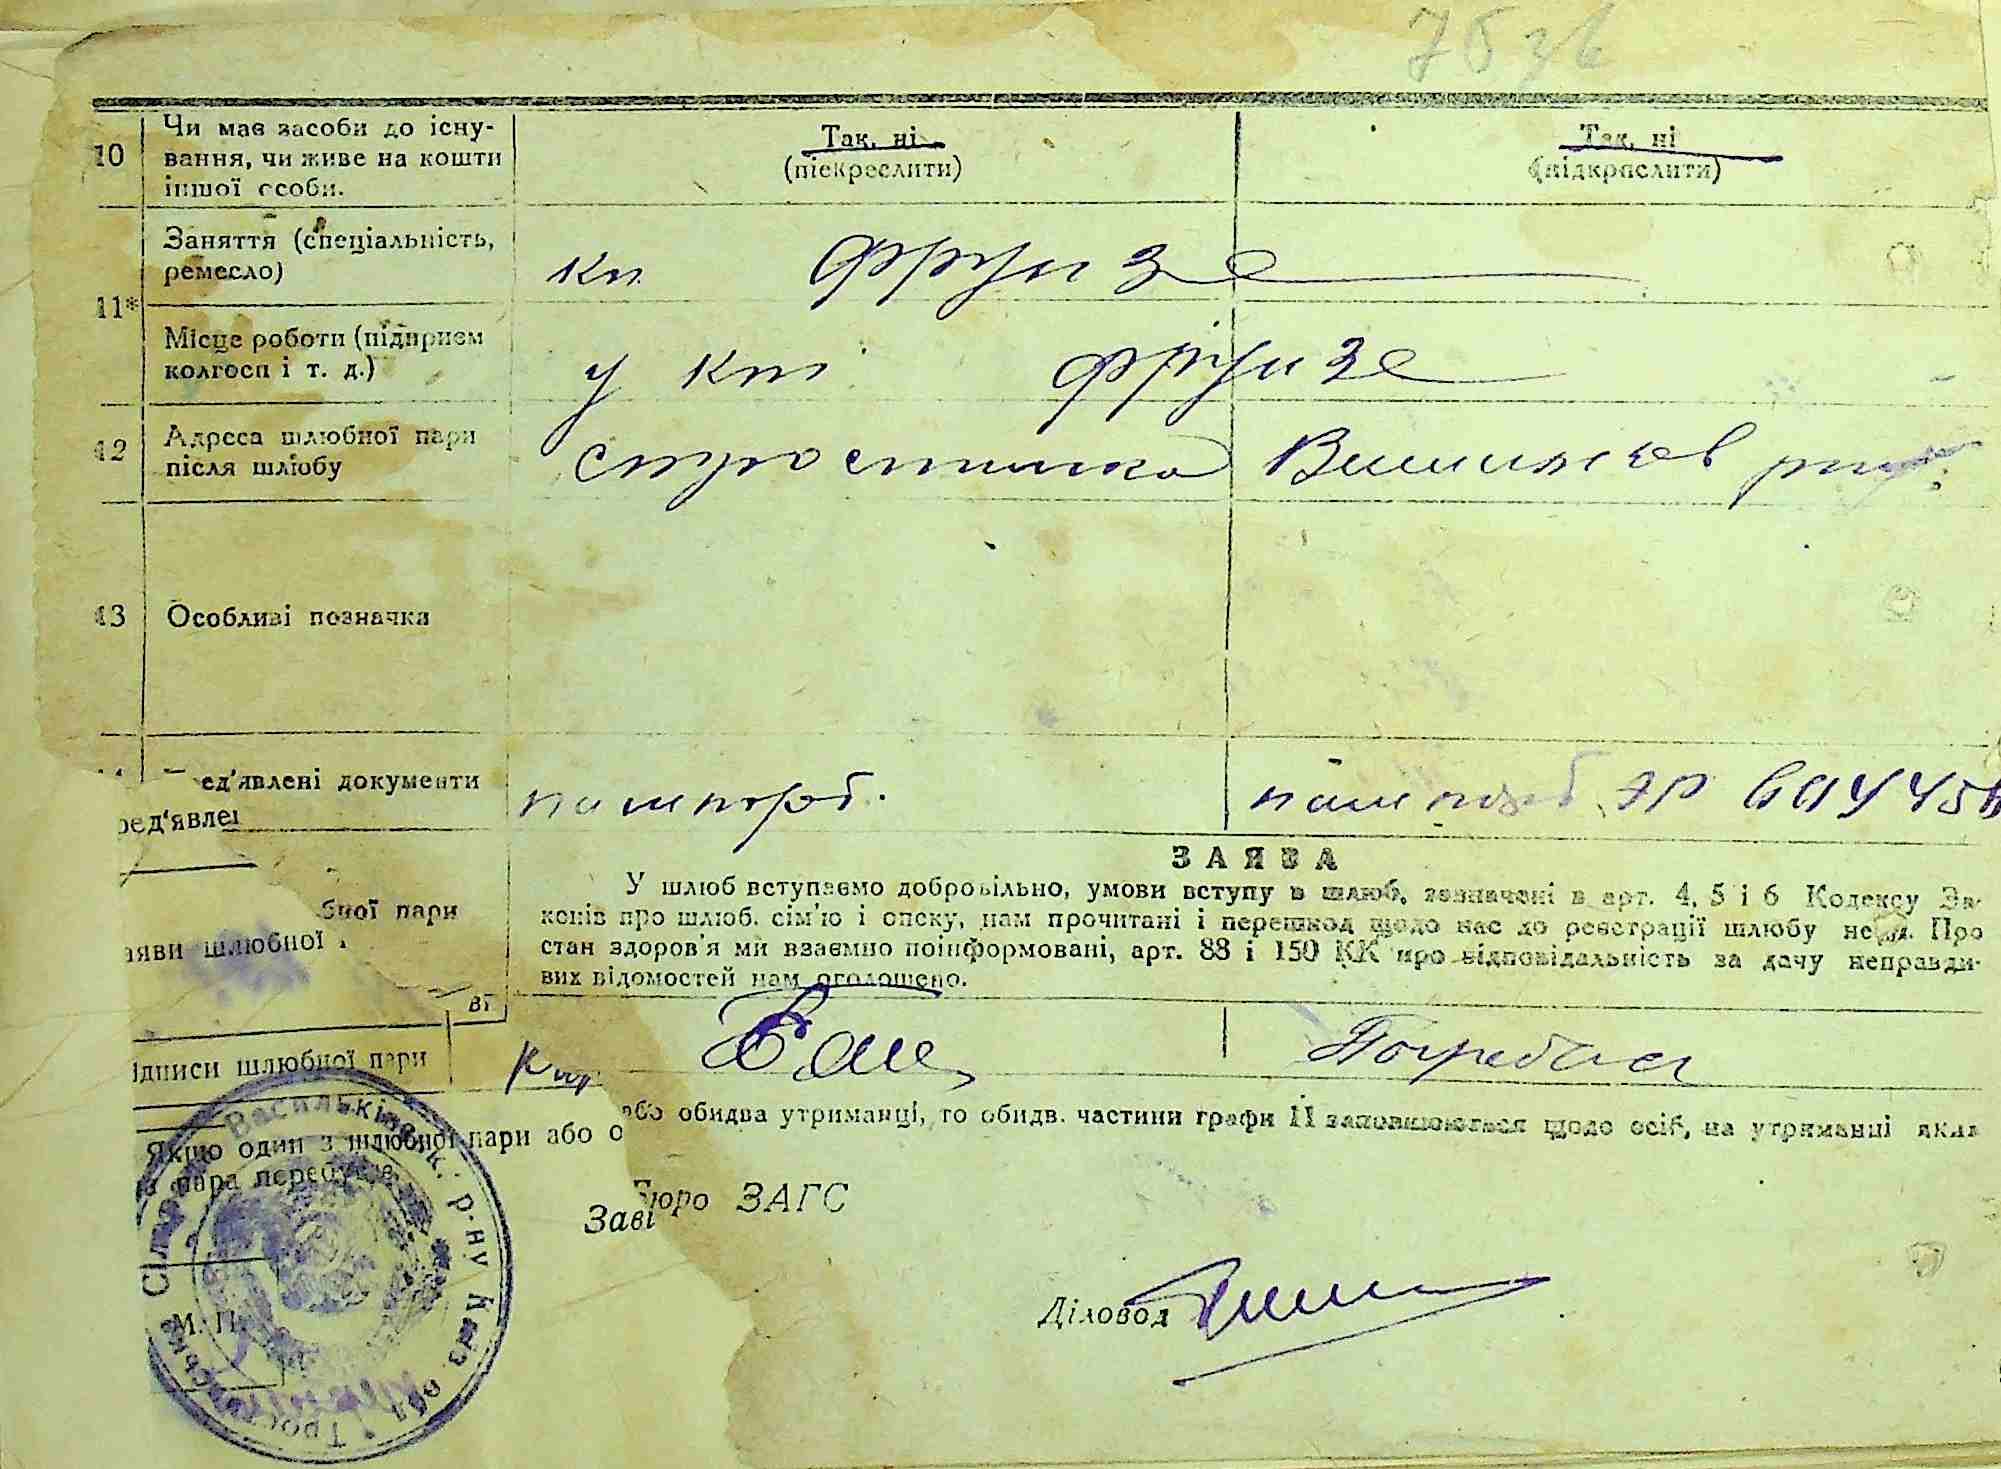 75 зв
10 Чи має засоби до існу-
вання, чи живе на кошти
іншої особи.
Так, ні
(підкреслити)
Так, ні
(підкреслити)
11*
Заняття (спеціальність,
ремесло)
кп Фрунзе
Місце роботи (підприєм
колгосп і т. д.)
у кп Фрунзе
12 Адреса шлюбної пари
після шлюбу
13 Особливі позначки
ед'явлені документи
ред'явлен
паспорт.
паспорт ЭР
ЗАЯВА
У шлюб вступаємо добровільно, умови вступу в шлюб, зазначені в арт. 4, 5 і 6 Кодексу За-
конів про шлюб, сім'ю і опеку, нам прочитані і перешкод щодо нас до реєстрації шлюбу нема. Про
стан здоров'я ми взаємно поінформовані, арт. 88 і 150 КК про відповідальність за дачу неправди-
вих відомостей нам оголошено.
бної пари
аяви шлюбної
ідписи шлюбної пари
Погребная
Якщо один з шлюбної пари або о
або обидва утриманці, то обидв. частини графи 11 заповнюються щодо осіб, на утриманні яких
пара перебуває
Заві
Бюро ЗАГС
М. П.
Діловод
Сільська Васильківськ. р-ну Київ. обл.